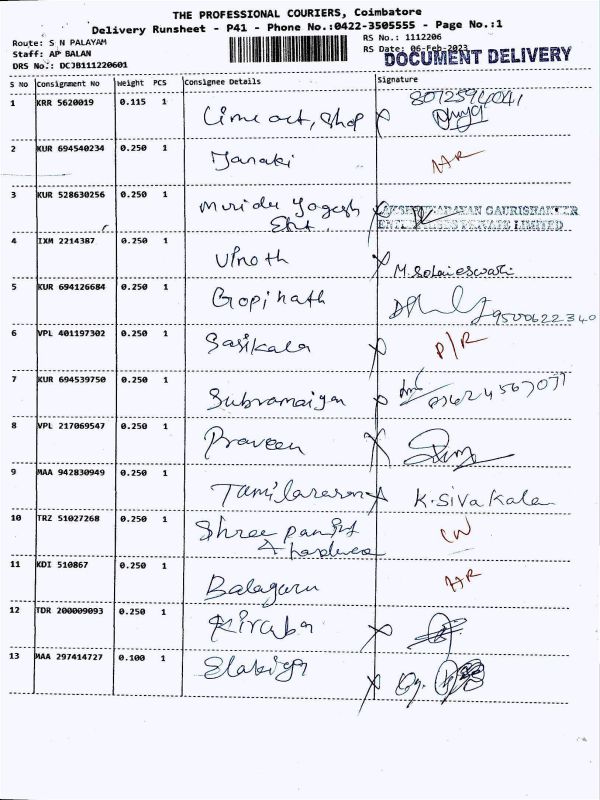 THE PROFESSIONAL COURIERS, Coimbatore
Delivery Runsheet - P41 - Phone No.:0422-3505555 - Page No.:1
Route: S N PALAYAM
RS No.: 1112206
Staff: AP BALAN
RS Date: 06-Feb-2023
DOCUMENT DELIVERY
DRS No.: DCJB111220601
S No Consignment No Weight PCS Consignee Details Signature
1 KRR 5620019 0.115 1 Lime out, Shop 8072594041
2 KUR 694540234 0.250 1 Janaki
3 KUR 528630256 0.250 1 Yogesh
GAURISHANKER
ENTERPRISES PRIVATE LIMITED
4 IXM 2214387 0.250 1 Vinoth M.Solaieswari
5 KUR 694126684 0.250 1 Gopinath 9500622340
6 VPL 401197302 0.250 1 Sasikala P/R
7 KUR 694539750 0.250 1 Subramaiyan
8 VPL 217069547 0.250 1 Praveen
9 MAA 942830949 0.250 1 Tamilarasan K.Sivakala
10 TRZ 51027268 0.250 1 Shree
11 KDI 510867 0.250 1 Balaguru
12 TDR 200009093 0.250 1 Kiruba
13 MAA 297414727 0.100 1 Elakiya